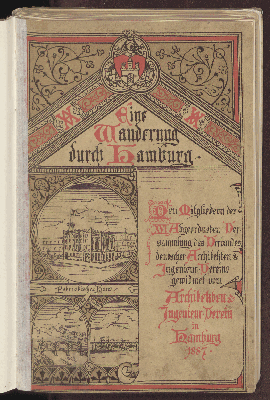 Eine
Wanderung
durch Hamburg.
Den Mitgliedern der
XVI Abgeordneten Ver-
sammlung des Verbandes
deutscher Architekten &
Ingenieur-Vereine
gewidmet vom
Architekten &
Ingenieur Verein
in
Hamburg
1887.
Patriotisches Haus